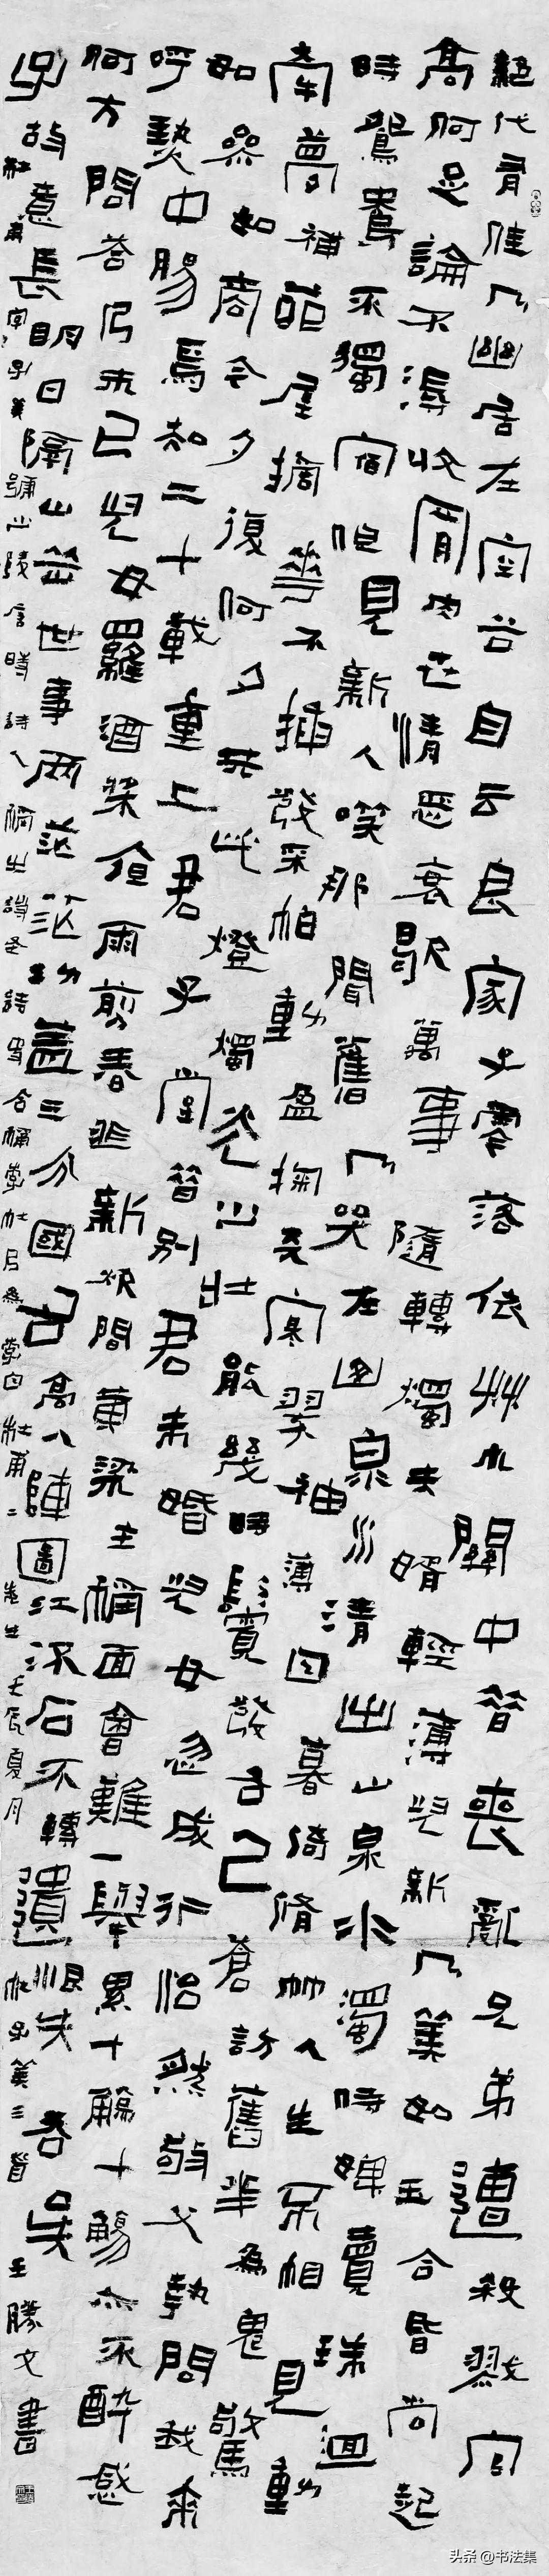 絕代有佳人幽居在空谷自云良家子零落依草木關中昔喪亂兄弟遭殺戮官
高何足論不得收骨肉世情惡衰歇萬事隨轉燭夫婿輕薄兒新人美如玉合昏尚起
時鴛鴦不獨宿但見新人笑那聞舊人哭在山泉水清出山泉水濁侍婢賣珠迴
牽蘿補茆屋摘華不插髮采柏動盈掬天寒翠袖薄日暮倚脩竹人生不相見動
如參如商今夕復何夕共此燈燭光少壯能幾時鬢髮各已蒼訪舊半為鬼驚
呼熱中腸焉知二十載重上君子堂昔別君未婚兒女忽成行怡然敬父執問我來
何方問答乃未已兒女羅酒漿夜雨剪春韭新炊間黃粱主稱面會難一舉累十觴十觴亦不醉感
子故意長明日隔山岳世事兩茫茫功蓋三分國名高八陣圖江流石不轉遺恨失吞吳
杜甫字子美號少陵唐時詩人稱之詩圣詩史合稱李杜后為李白杜甫先生壬辰夏月杜子美三首王勝文書
头条 @书法集